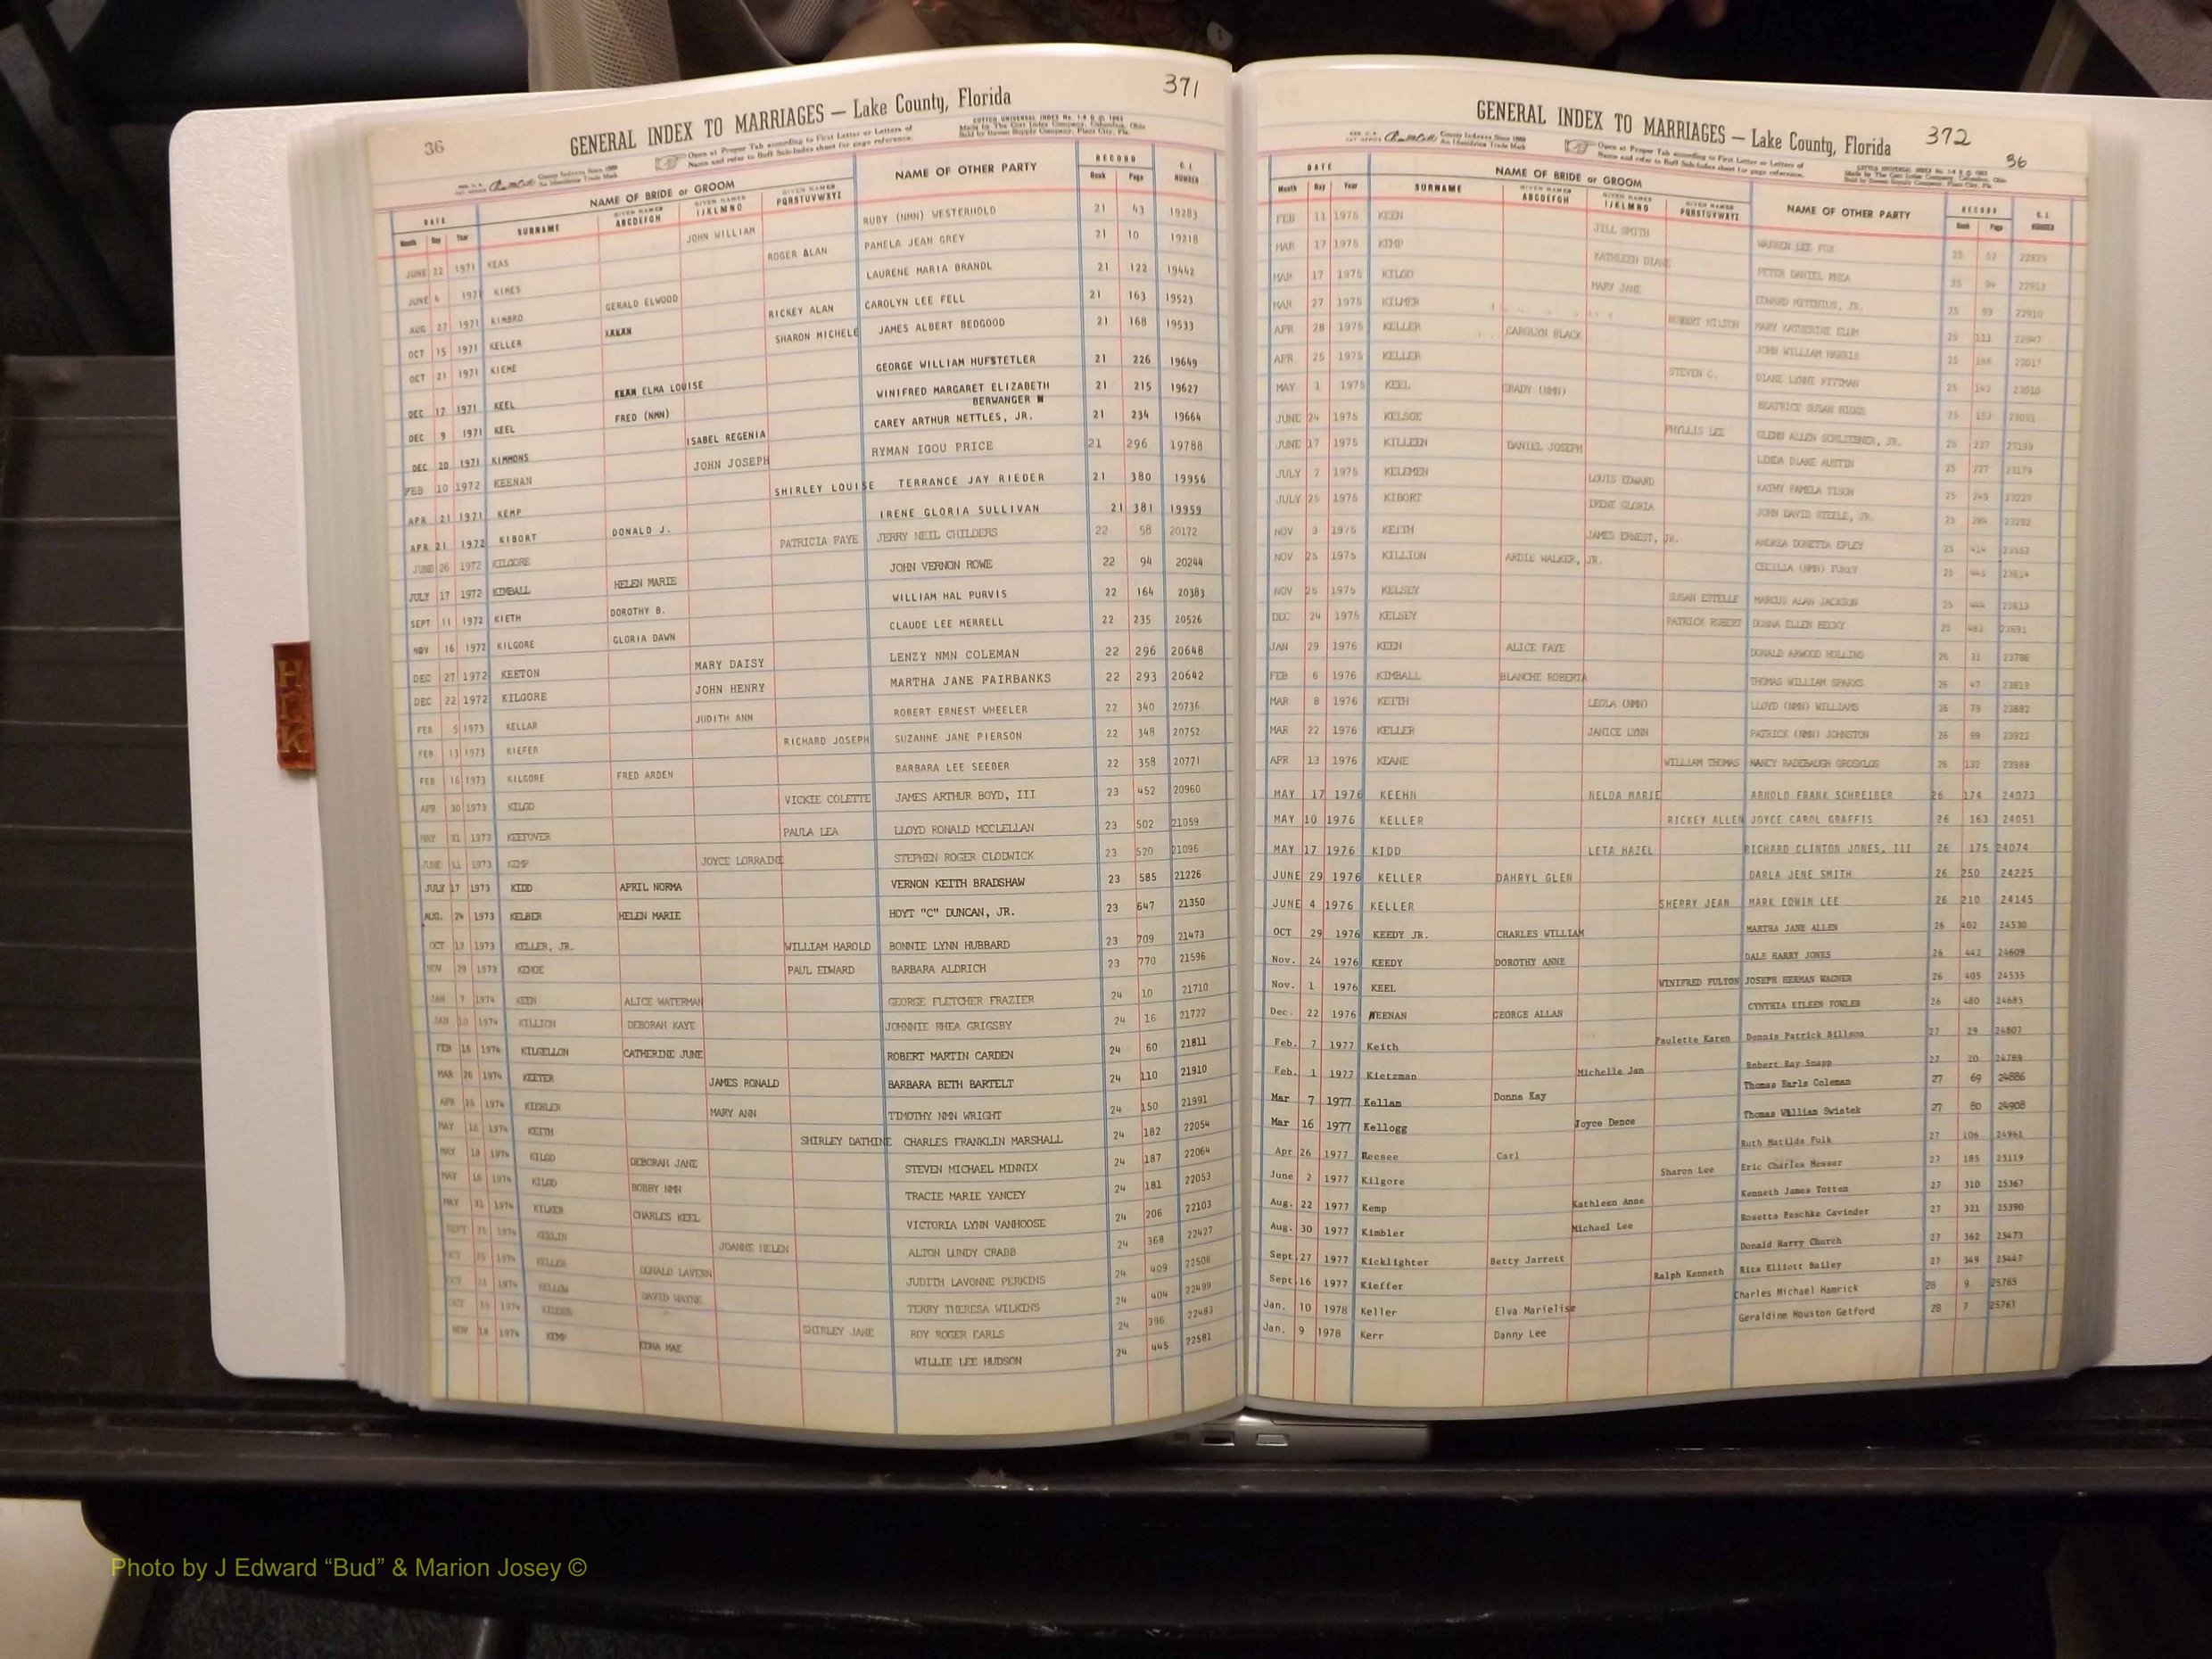 36
371
GENERAL INDEX TO MARRIAGES — Lake County, Florida
COTTCO UNIVERSAL INDEX
Made by The Cott Index Company, Columbus, Ohio
Sold by Brown Supply Company, Plant City, Fla.
County Indexes Since 1888
An Identifying Trade Mark
Open at Proper Tab according to First Letter or Letters of
Name and refer to Buff Sub-Index sheet for page reference.
DATE NAME OF BRIDE or GROOM NAME OF OTHER PARTY RECORD C. I. NUMBER
Month Day Year SURNAME GIVEN NAMES ABCDEFGH GIVEN NAMES IJKLMNO GIVEN NAMES PQRSTUVWXYZ Book Page
JUNE 22 1971 KEAS JOHN WILLIAM RUBY (NMN) WESTERHOLD 21 43 19283
JUNE 4 1971 KIMES ROGER ALAN PAMELA JEAN GREY 21 10 19218
AUG 27 1971 KIMBRO GERALD ELWOOD LAURENE MARIA BRANDL 21 122 19442
OCT 15 1971 KELLER RICKEY ALAN CAROLYN LEE FELL 21 163 19523
OCT 21 1971 KIEHE SHARON MICHELE JAMES ALBERT BEDGOOD 21 168 19533
DEC 17 1971 KEEL ELMA LOUISE GEORGE WILLIAM HUFSTETLER 21 226 19649
DEC 9 1971 KEEL FRED (NMN) WINIFRED MARGARET ELIZABETH BERWANGER 21 215 19627
DEC 20 1971 KIMMONS ISABEL REGENIA CAREY ARTHUR NETTLES, JR. 21 234 19664
FEB 10 1972 KEENAN JOHN JOSEPH RYMAN IGOU PRICE 21 296 19788
APR 21 1971 KEMP SHIRLEY LOUISE TERRANCE JAY RIEDER 21 380 19956
APR 21 1972 KIBORT DONALD J. IRENE GLORIA SULLIVAN 21 381 19959
JUNE 26 1972 KILGORE PATRICIA FAYE JERRY NEIL CHILDERS 22 58 20172
JULY 17 1972 KIMBALL HELEN MARIE JOHN VERNON ROWE 22 94 20244
SEPT 11 1972 KIETH DOROTHY B. WILLIAM HAL PURVIS 22 164 20383
NOV 16 1972 KILGORE GLORIA DAWN CLAUDE LEE MERRELL 22 235 20526
DEC 27 1972 KEETON MARY DAISY LENZY NMN COLEMAN 22 296 20648
DEC 22 1972 KILGORE JOHN HENRY MARTHA JANE FAIRBANKS 22 293 20642
FEB 5 1973 KELLAR JUDITH ANN ROBERT ERNEST WHEELER 22 340 20736
FEB 13 1973 KIEFER RICHARD JOSEPH SUZANNE JANE PIERSON 22 348 20752
FEB 16 1973 KILGORE FRED ARDEN BARBARA LEE SEEBER 22 358 20771
APR 30 1973 KILGO VICKIE COLETTE JAMES ARTHUR BOYD, III 23 452 20960
MAY 31 1973 KEEFOVER PAULA LEA LLOYD RONALD MCCLELLAN 23 502 21059
JUNE 12 1973 KEMP JOYCE LORRAINE STEPHEN ROGER CLODWICK 23 520 21096
JULY 17 1973 KIDD APRIL NORMA VERNON KEITH BRADSHAW 23 585 21226
AUG. 24 1973 KELBER HELEN MARIE HOYT "C" DUNCAN, JR. 23 647 21350
OCT 13 1973 KELLER, JR. WILLIAM HAROLD BONNIE LYNN HUBBARD 23 709 21473
NOV. 29 1973 KEHOE PAUL EDWARD BARBARA ALDRICH 23 770 21596
JAN 7 1974 KEEN ALICE WATERMAN GEORGE FLETCHER FRAZIER 24 10 21710
JAN 10 1974 KILLION DEBORAH KAYE JOHNNIE RHEA GRIGSBY 24 16 21722
FEB 16 1974 KILGELLON CATHERINE JUNE ROBERT MARTIN CARDEN 24 60 21811
MAR 26 1974 KEETER JAMES RONALD BARBARA BETH BARTELT 24 110 21910
APR 25 1974 KIEHLER MARY ANN TIMOTHY NMN WRIGHT 24 150 21991
MAY 16 1974 KEITH SHIRLEY DATHINE CHARLES FRANKLIN MARSHALL 24 182 22054
MAY 18 1974 KILGO DEBORAH JANE STEVEN MICHAEL MINNIX 24 187 22064
MAY 16 1974 KILGO BOBBY NMN TRACIE MARIE YANCEY 24 181 22053
MAY 31 1974 KILMER CHARLES KEEL VICTORIA LYNN VANHOOSE 24 206 22103
SEPT 1974 KEELIN JOANNE HELEN ALTON LUNDY CRABB 24 368 22427
OCT 1974 KELLER DONALD LAVERN JUDITH LAVONNE PERKINS 24 409 22506
OCT 21 1974 KELLOW DAVID WAYNE TERRY THERESA WILKINS 24 404 22499
OCT 1974 SHIRLEY JANE ROY ROGER EARLS 24 396 22483
NOV 18 1974 KEMP EDNA MAE WILLIE LEE HUDSON 24 445 22581
GENERAL INDEX TO MARRIAGES — Lake County, Florida
372
36
County Indexes Since 1888
An Identifying Trade Mark
Open at Proper Tab according to First Letter or Letters of
Name and refer to Buff Sub-Index sheet for page reference.
DATE NAME OF BRIDE or GROOM NAME OF OTHER PARTY RECORD C. I. NUMBER
Month Day Year SURNAME GIVEN NAMES ABCDEFGH GIVEN NAMES IJKLMNO GIVEN NAMES PQRSTUVWXYZ Book Page
FEB 11 1975 KEEN JILL SMITH WARREN LEE FOX 25
MAR 17 1975 KEMP KATHLEEN DIANE PETER DANIEL RHEA 25
MAR 17 1975 KILGO MARY JANE EDWARD JR. 25
MAR 27 1975 KILMER ROBERT MILTON MARY KATHERINE ELUM 25 111 22947
APR 28 1975 KELLER CAROLYN BLACK JOHN WILLIAM HARRIS 25
APR 25 1975 KELLER STEVEN C. DIANE LYNNE PITTMAN 25
MAY 1 1975 KEEL GRADY (NMN) BEATRICE SUSAN 25 153
JUNE 24 1975 KELSOE PHYLLIS LEE GLENN ALLEN JR. 25 227
JUNE 17 1975 KILLEEN DANIEL JOSEPH LINDA DIANE AUSTIN 25 227 23179
JULY 2 1975 KELEMEN LOUIS EDWARD KATHY PAMELA TISON 25 249 23223
JULY 25 1975 KIBORT IRENE GLORIA JOHN DAVID STEELE, JR. 25 284 23292
NOV 3 1975 KEITH JAMES ERNEST, JR. ANDREA DONETTA EPLEY 25 414
NOV 25 1975 KILLION ARDIE WALKER, JR. CECILIA (NMN) FUREY 25 445 23614
NOV 25 1975 KELSEY SUSAN ESTELLE MARCUS ALAN JACKSON 25 444 23613
DEC 24 1975 KELSEY PATRICK ROBERT DONNA ELLEN BECKY 25 483 23691
JAN 29 1976 KEEN ALICE FAYE DONALD ARWOOD HOLLINS 26 31 23786
FEB 6 1976 KIMBALL BLANCHE ROBERTA THOMAS WILLIAM SPARKS 26 47 23819
MAR 8 1976 KEITH LEOLA (NMN) LLOYD (NMN) WILLIAMS 26 79 23882
MAR 22 1976 KELLER JANICE LYNN PATRICK (NMN) JOHNSTON 26 99 23922
APR 13 1976 KEANE WILLIAM THOMAS NANCY RADEBAUGH GROSKLOS 26 132 23988
MAY 17 1976 KEEHN NELDA MARIE ARNOLD FRANK SCHREIBER 26 174 24073
MAY 10 1976 KELLER RICKEY ALLEN JOYCE CAROL GRAFFIS 26 163 24051
MAY 17 1976 KIDD LETA HAZEL RICHARD CLINTON JONES, III 26 175 24074
JUNE 29 1976 KELLER DAHRYL GLEN DARLA JENE SMITH 26 250 24225
JUNE 4 1976 KELLER SHERRY JEAN MARK EDWIN LEE 26 210 24145
OCT 29 1976 KEEDY JR. CHARLES WILLIAM MARTHA JANE ALLEN 26 402 24530
Nov. 24 1976 KEEDY DOROTHY ANNE DALE HARRY JONES 26 442 24609
Nov. 1 1976 KEEL WINIFRED FULTON JOSEPH HERMAN WAGNER 26 405 24535
Dec. 22 1976 KEENAN GEORGE ALLAN CYNTHIA EILEEN FOWLER 26 480 24685
Feb. 7 1977 Keith Paulette Karen Dennis Patrick Billson 27 29 24807
Feb. 1 1977 Kietzman Michelle Jan Robert Ray Snapp 27 20 24789
Mar 7 1977 Kellam Donna Kay Thomas Earls Coleman 27 69 24886
Mar 16 1977 Kellogg Joyce Dence Thomas William Swistek 27 80 24908
Apr 26 1977 Keesee Carl Ruth Matilda Fulk 27 106 24961
June 2 1977 Kilgore Sharon Lee Eric Charles Messer 27 185 25119
Aug. 22 1977 Kemp Kathleen Anne Kenneth James Totten 27 310 25367
Aug. 30 1977 Kimbler Michael Lee Rosetta Peschke Cavinder 27 321 25390
Sept 27 1977 Kicklighter Betty Jarrett Donald Harry Church 27 362 25473
Sept 16 1977 Kieffer Ralph Kenneth Rita Elliott Bailey 27 349 25447
Jan. 10 1978 Keller Elva Marielise Charles Michael Hamrick 28 9 25765
Jan. 9 1978 Kerr Danny Lee Geraldine Houston Getford 28 7 25761
H
I
K
Photo by J Edward “Bud” & Marion Josey ©